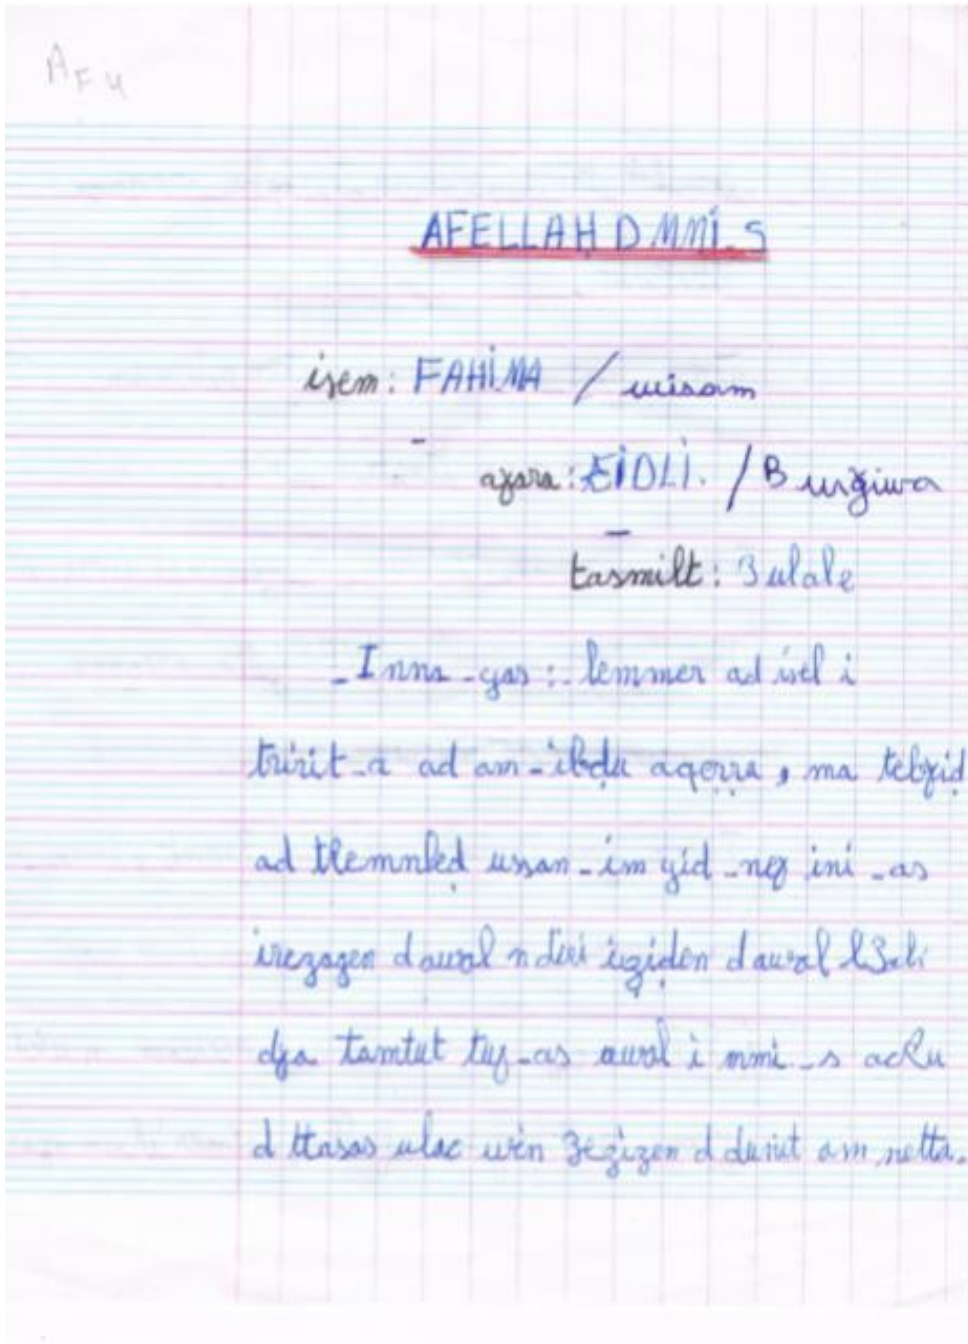 AF4
AFELLAH D MMI-S
isem: FAHIMA / wisam
aɣara: ƐIDLI. / Burǧiwa
tasmilt: 3 ulale
- Inna-yas: lemmer ad isel i
tririt-a ad am-ibḍu aqerra, ma tebɣid
ad ussan-im yid-neɣ ini-as
d awal n diri iẓiden d awal
dja tamtut tuɣ-as awal i mmi-s acku
d ttasas ulac win 3zizen d dunit am netta.